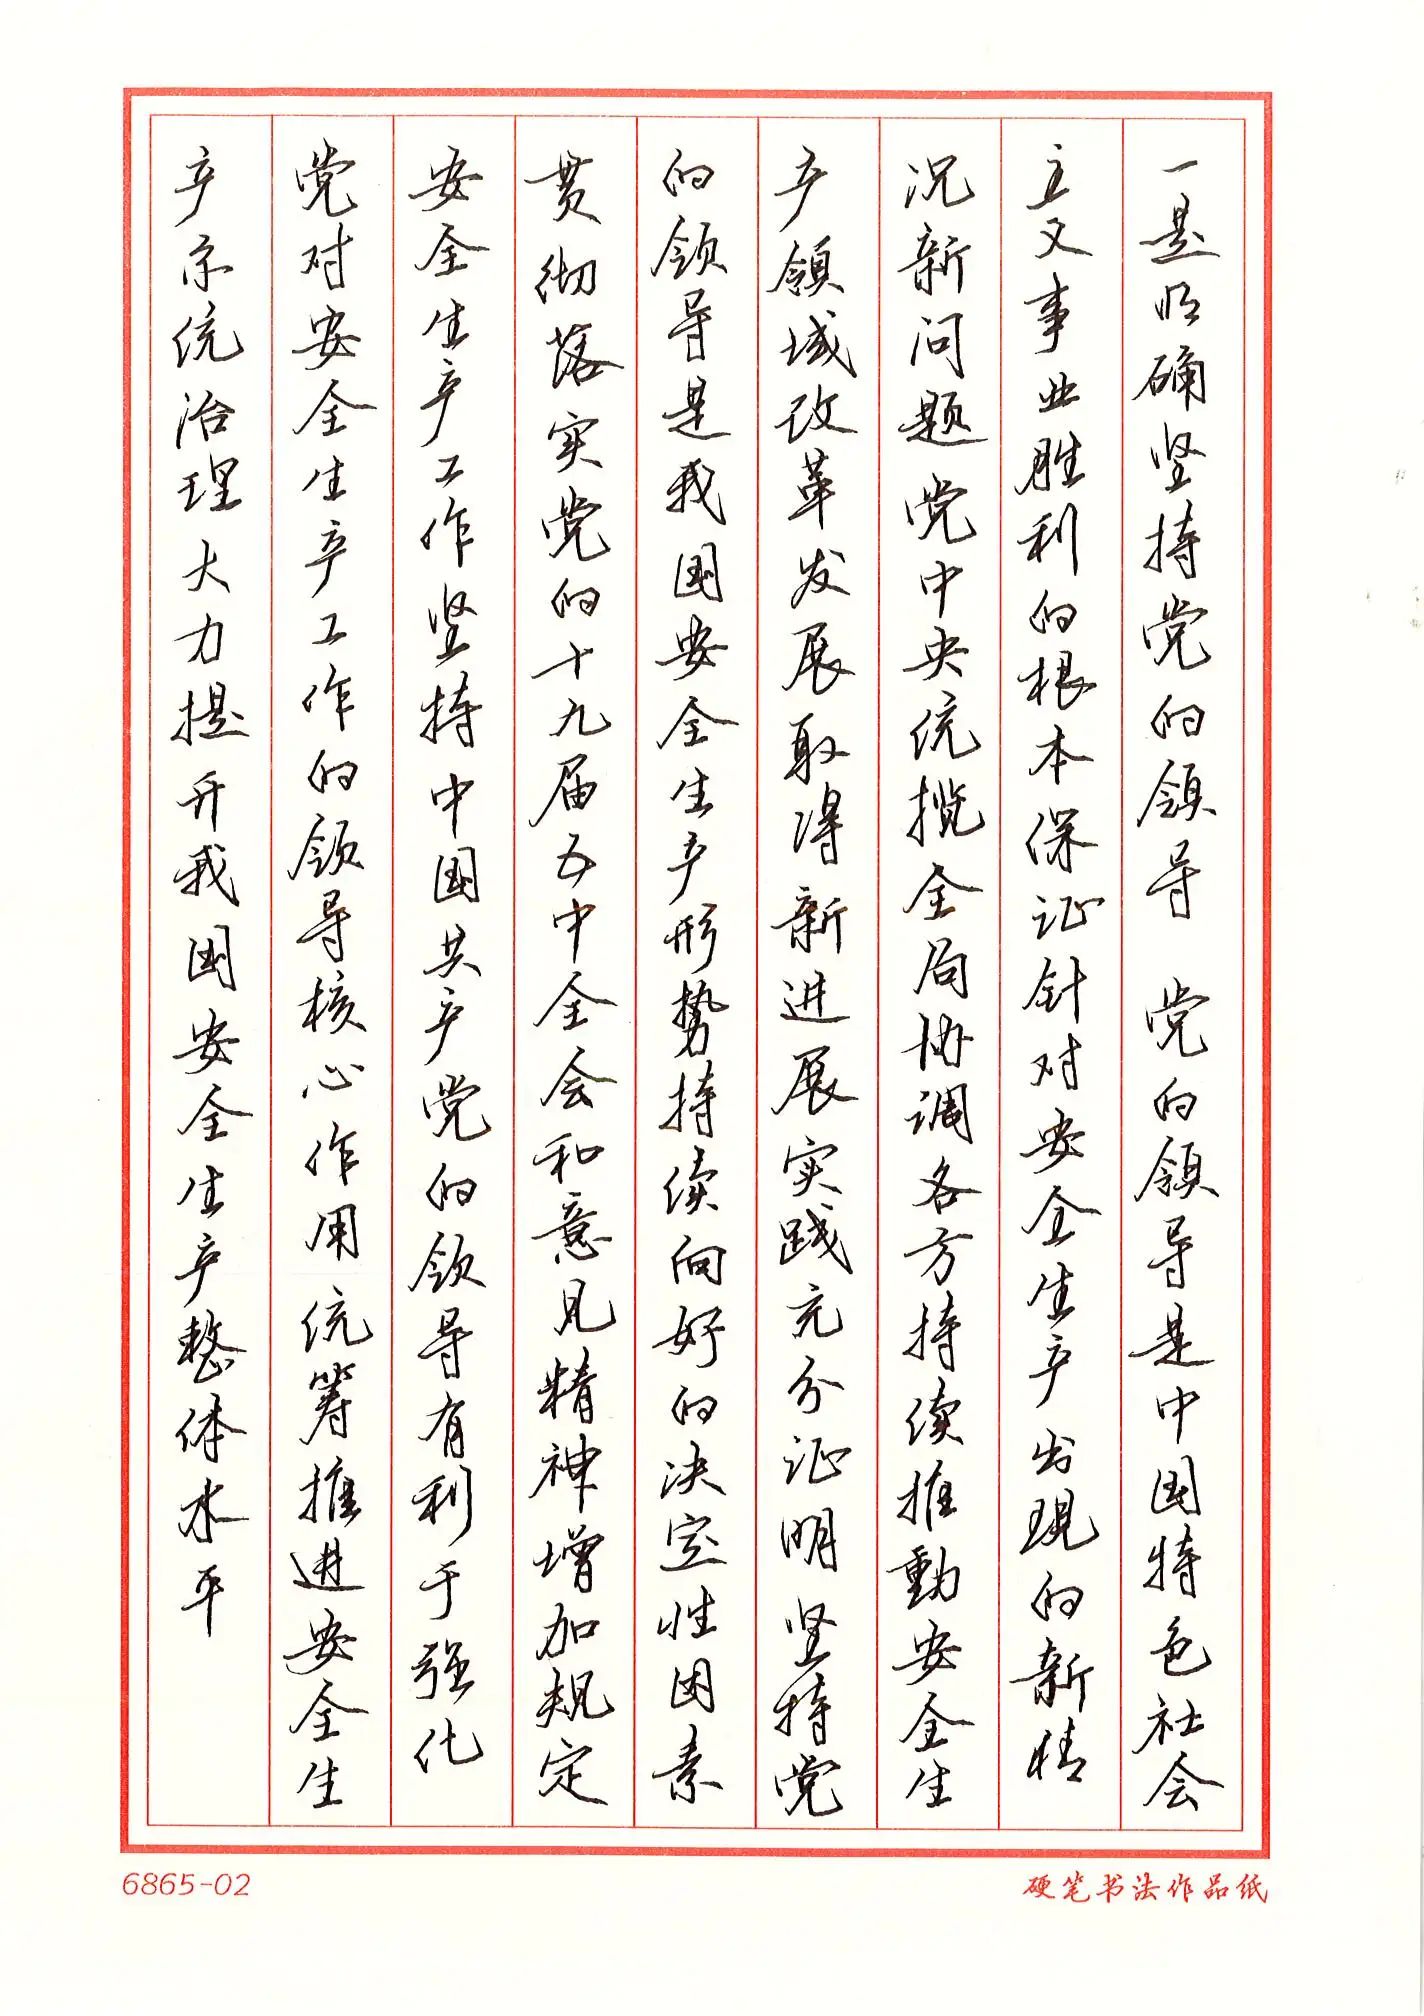 一是明确坚持党的领导 党的领导是中国特色社会
主义事业胜利的根本保证针对安全生产出现的新情
况新问题党中央统揽全局协调各方持续推動安全生
产领域改革发展取得新进展实践充分证明坚持党
的领导是我国安全生产形势持续向好的决定性因素
贯彻落实党的十九届五中全会和意见精神增加规定
安全生产工作坚持中国共产党的领导有利于强化
党对安全生产工作的领导核心作用统筹推进安全生
产系统治理大力提升我国安全生产整体水平
6865-02
硬笔书法作品纸